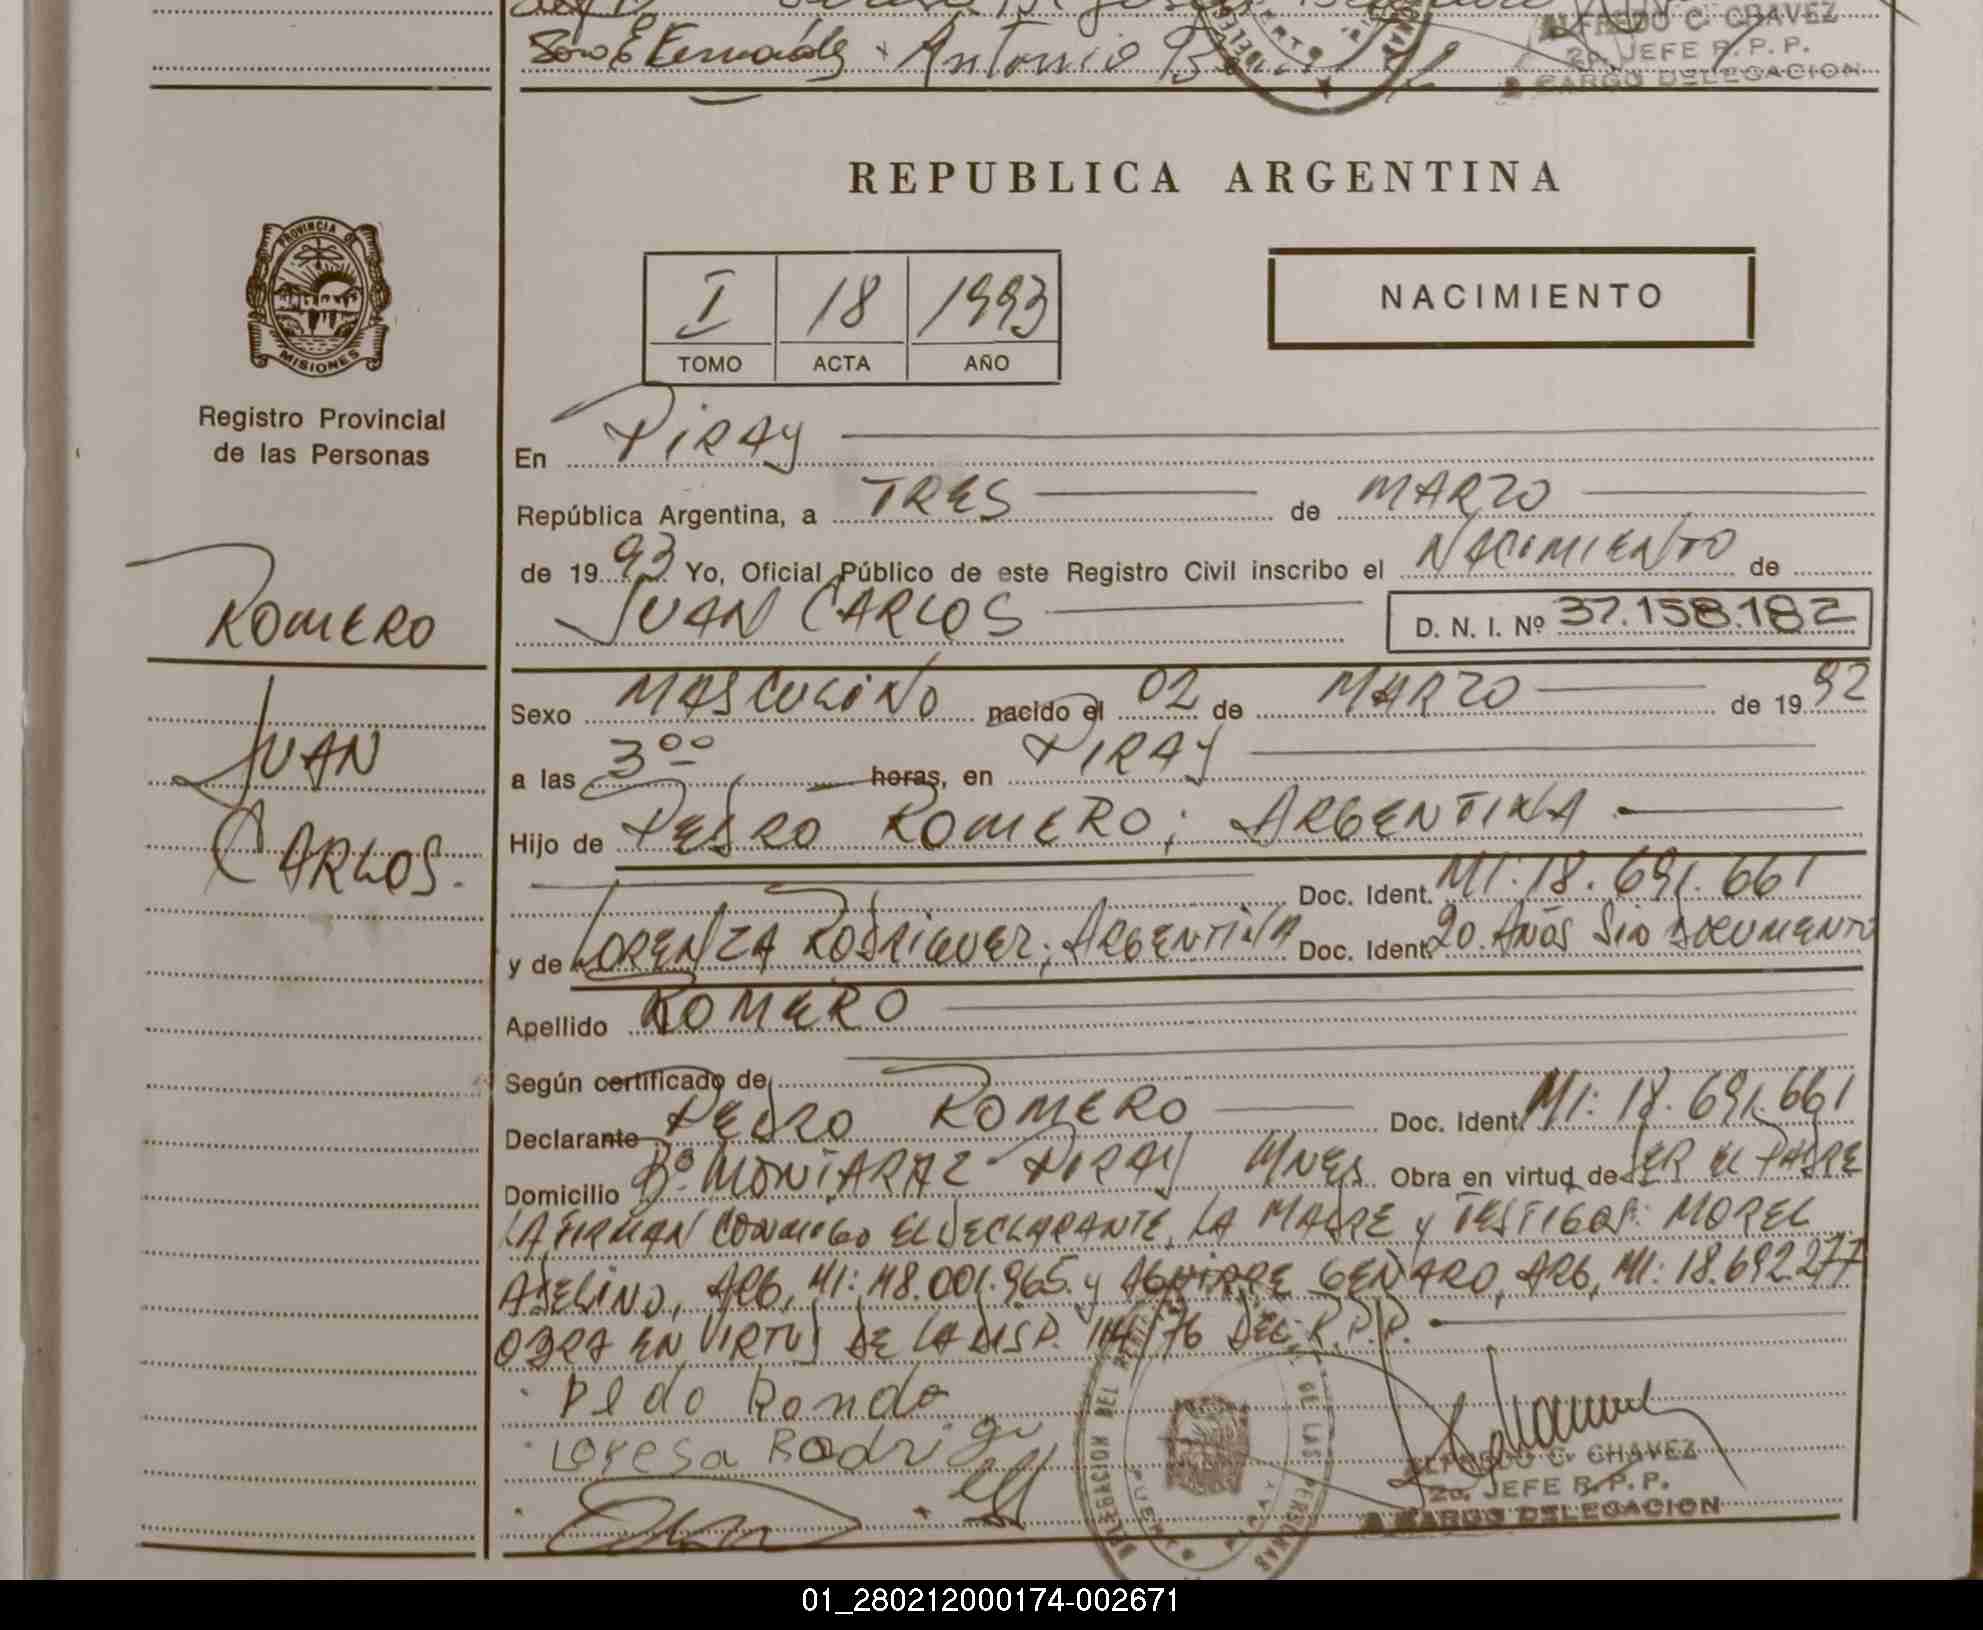 Antonio B
ALFREDO C. CHAVEZ
2o. JEFE R. P. P.
A CARGO DELEGACION
REPUBLICA ARGENTINA
PROVINCIA DE
MISIONES
Registro Provincial
de las Personas
I 18 1993
TOMO ACTA AÑO
NACIMIENTO
En PIRAY
República Argentina, a TRES de MARZO
de 1993 Yo, Oficial Público de este Registro Civil inscribo el NACIMIENTO de
JUAN CARLOS D. N. I. Nº 37.158.182
ROMERO
JUAN
CARLOS.
Sexo MASCULINO nacido el 02 de MARZO de 1992
a las 3oo horas, en PIRAY
Hijo de PEDRO ROMERO; ARGENTINA
Doc. Ident. MI: 18.691.661
y de LORENZA RODRIGUEZ; ARGENTINA Doc. Ident. 20 AÑOS SIN DOCUMENTO
Apellido ROMERO
Según certificado de
Declarante PEDRO ROMERO Doc. Ident. MI: 18.691.661
Domicilio Bº MONTARAZ PIRAY MNES. Obra en virtud de SER EL PADRE
LA FIRMAN CONMIGO EL DECLARANTE, LA MADRE y TESTIGOS: MOREL
ADELINO, ARG, MI: 18.001.965 y AGUIRRE GENARO, ARG, MI: 18.692.277
OBRA EN VIRTUD DE LA DISP. 114/76 DEL R.P.P.
DELEGACION DEL DE LAS PERSONAS
ALFREDO C. CHAVEZ
2o. JEFE R. P. P.
A CARGO DELEGACION
01_280212000174-002671